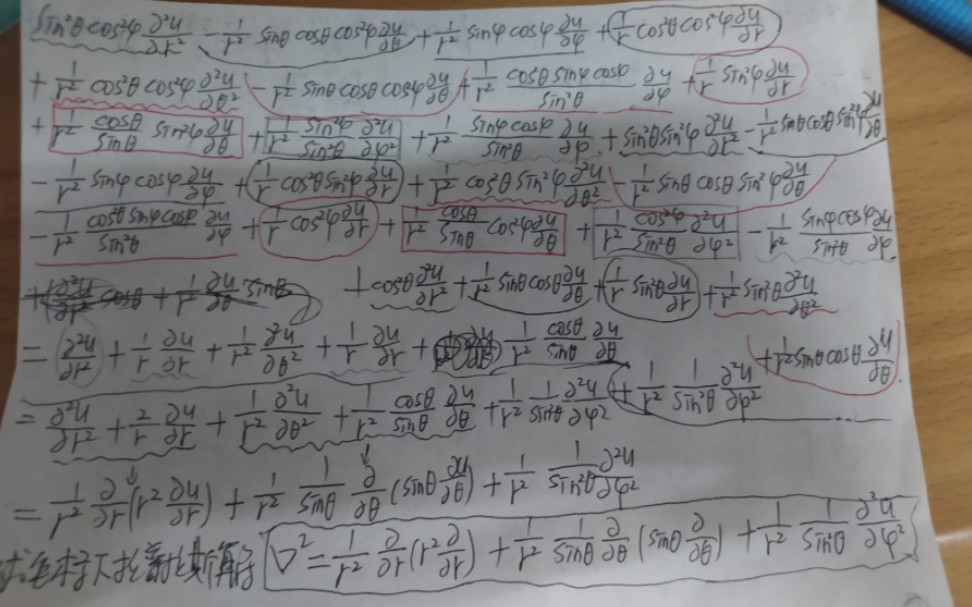 sin²θcos²φ ∂²u/∂r² - 1/r² sinθcosθcos²φ ∂u/∂θ + 1/r² sinφcosφ ∂u/∂φ + 1/r cos²θcos²φ ∂u/∂r
+ 1/r² cos²θcos²φ ∂²u/∂θ² - 1/r² sinθcosθcos²φ ∂u/∂θ + 1/r² cos²θsinφcosφ/sin²θ ∂u/∂φ + 1/r sin²φ ∂u/∂r
+ 1/r² cosθ/sinθ sin²φ ∂u/∂θ + 1/r² sin²φ/sin²θ ∂²u/∂φ² + 1/r² sinφcosφ/sin²θ ∂u/∂φ + sin²θsin²φ ∂²u/∂r² - 1/r² sinθcosθsin²φ ∂u/∂θ
- 1/r² sinφcosφ ∂u/∂φ + 1/r cos²θsin²φ ∂u/∂r + 1/r² cos²θsin²φ ∂²u/∂θ² - 1/r² sinθcosθsin²φ ∂u/∂θ
- 1/r² cos²θsinφcosφ/sin²θ ∂u/∂φ + 1/r cos²φ ∂u/∂r + 1/r² cosθ/sinθ cos²φ ∂u/∂θ + 1/r² cos²φ/sin²θ ∂²u/∂φ² - 1/r² sinφcosφ/sin²θ ∂u/∂φ
+ cos²θ ∂²u/∂r² + 1/r² sinθcosθ ∂u/∂θ + 1/r sin²θ ∂u/∂r + 1/r² sin²θ ∂²u/∂θ²
+ 1/r² sinθcosθ ∂u/∂θ
= ∂²u/∂r² + 1/r ∂u/∂r + 1/r² ∂²u/∂θ² + 1/r ∂u/∂r + 1/r² cosθ/sinθ ∂u/∂θ + 1/r² 1/sin²θ ∂²u/∂φ²
= ∂²u/∂r² + 2/r ∂u/∂r + 1/r² ∂²u/∂θ² + 1/r² cosθ/sinθ ∂u/∂θ + 1/r² 1/sin²θ ∂²u/∂φ²
= 1/r² ∂/∂r (r² ∂u/∂r) + 1/r² 1/sinθ ∂/∂θ (sinθ ∂u/∂θ) + 1/r² 1/sin²θ ∂²u/∂φ²
球坐标下拉普拉斯算符 ∇² = 1/r² ∂/∂r (r² ∂/∂r) + 1/r² 1/sinθ ∂/∂θ (sinθ ∂/∂θ) + 1/r² 1/sin²θ ∂²u/∂φ²